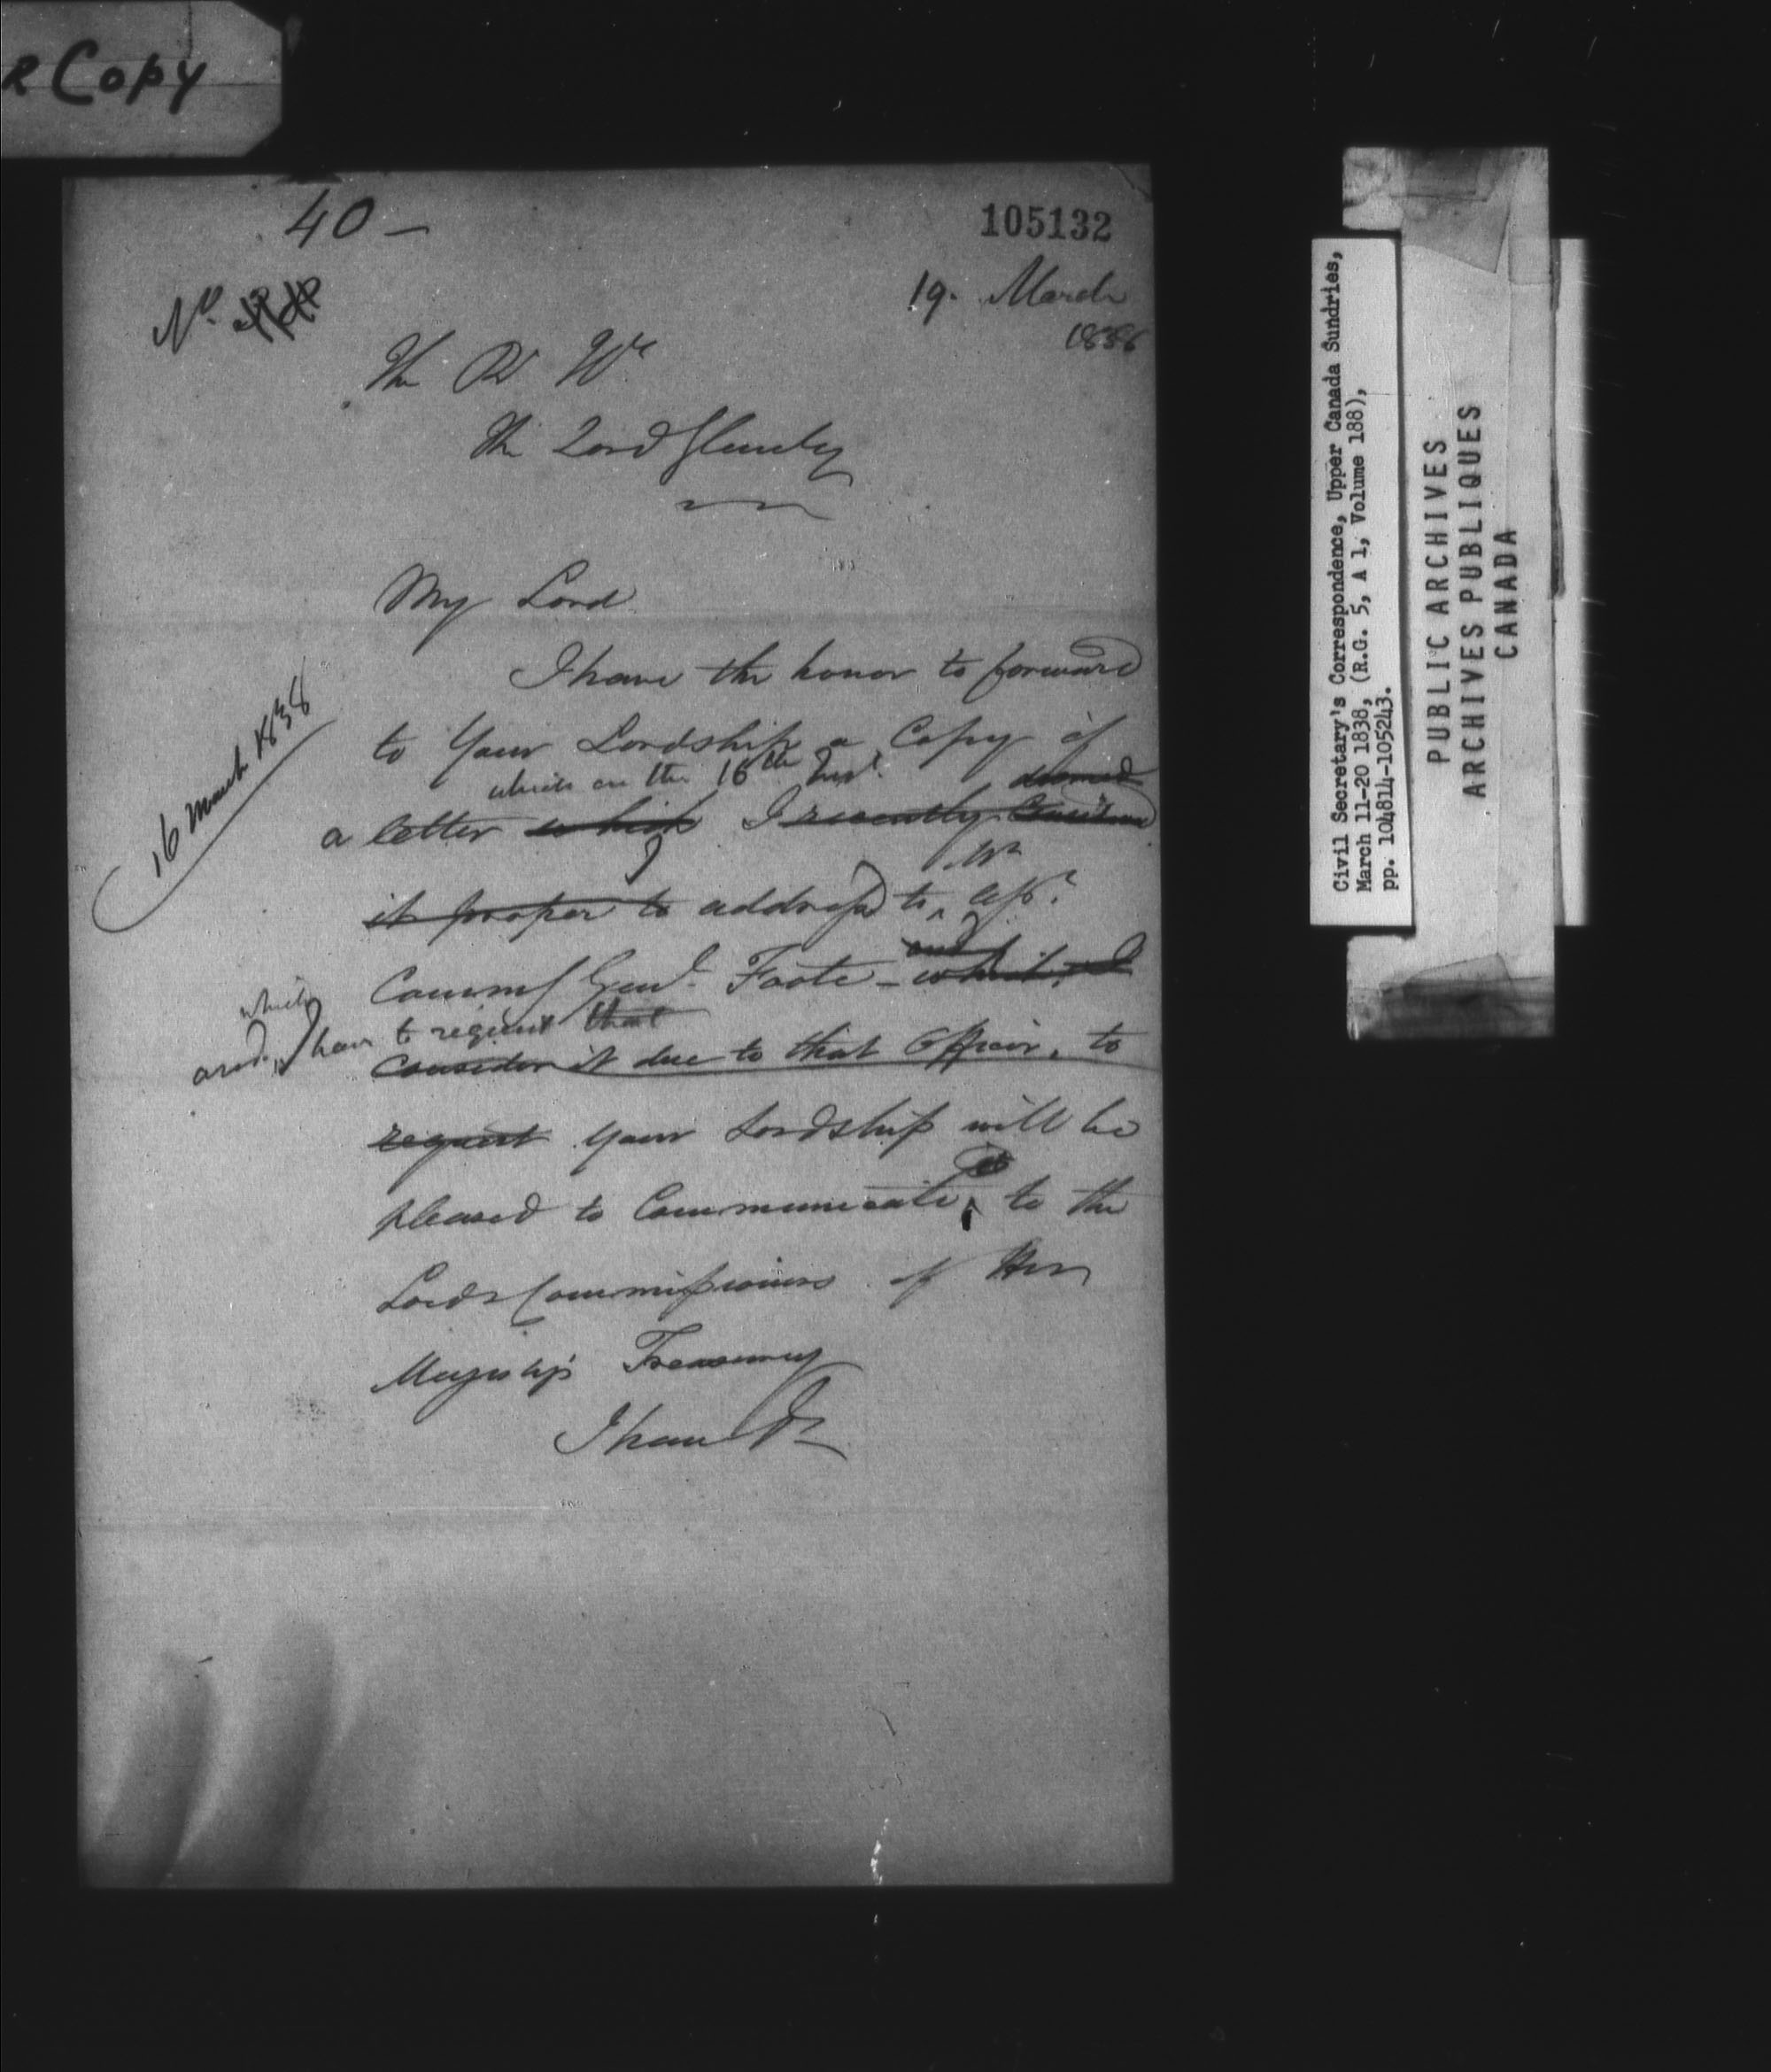 R Copy
40 —
105132
No.
19. March
1838
The Rt Hble
The Lord Glenelg
My Lord
I have the honor to forward
to Your Lordship a Copy of
which on the 16th Inst. deemed
a letter which I recently Considered
16 March 1838
it proper to address'd to Mr Asst
Commy Genl. Foote - and which I
which
and I have to request that
Consider it due to that Officer, to
request Your Lordship will be
pleased to Communicate to the
Lords Commissioners of Her
Majesty's Treasury
I have &c
Civil Secretary's Correspondence, Upper Canada Sundries,
March 11-20 1838, (R.G. 5, A 1, Volume 188),
pp. 104814-105243.
PUBLIC ARCHIVES
ARCHIVES PUBLIQUES
CANADA